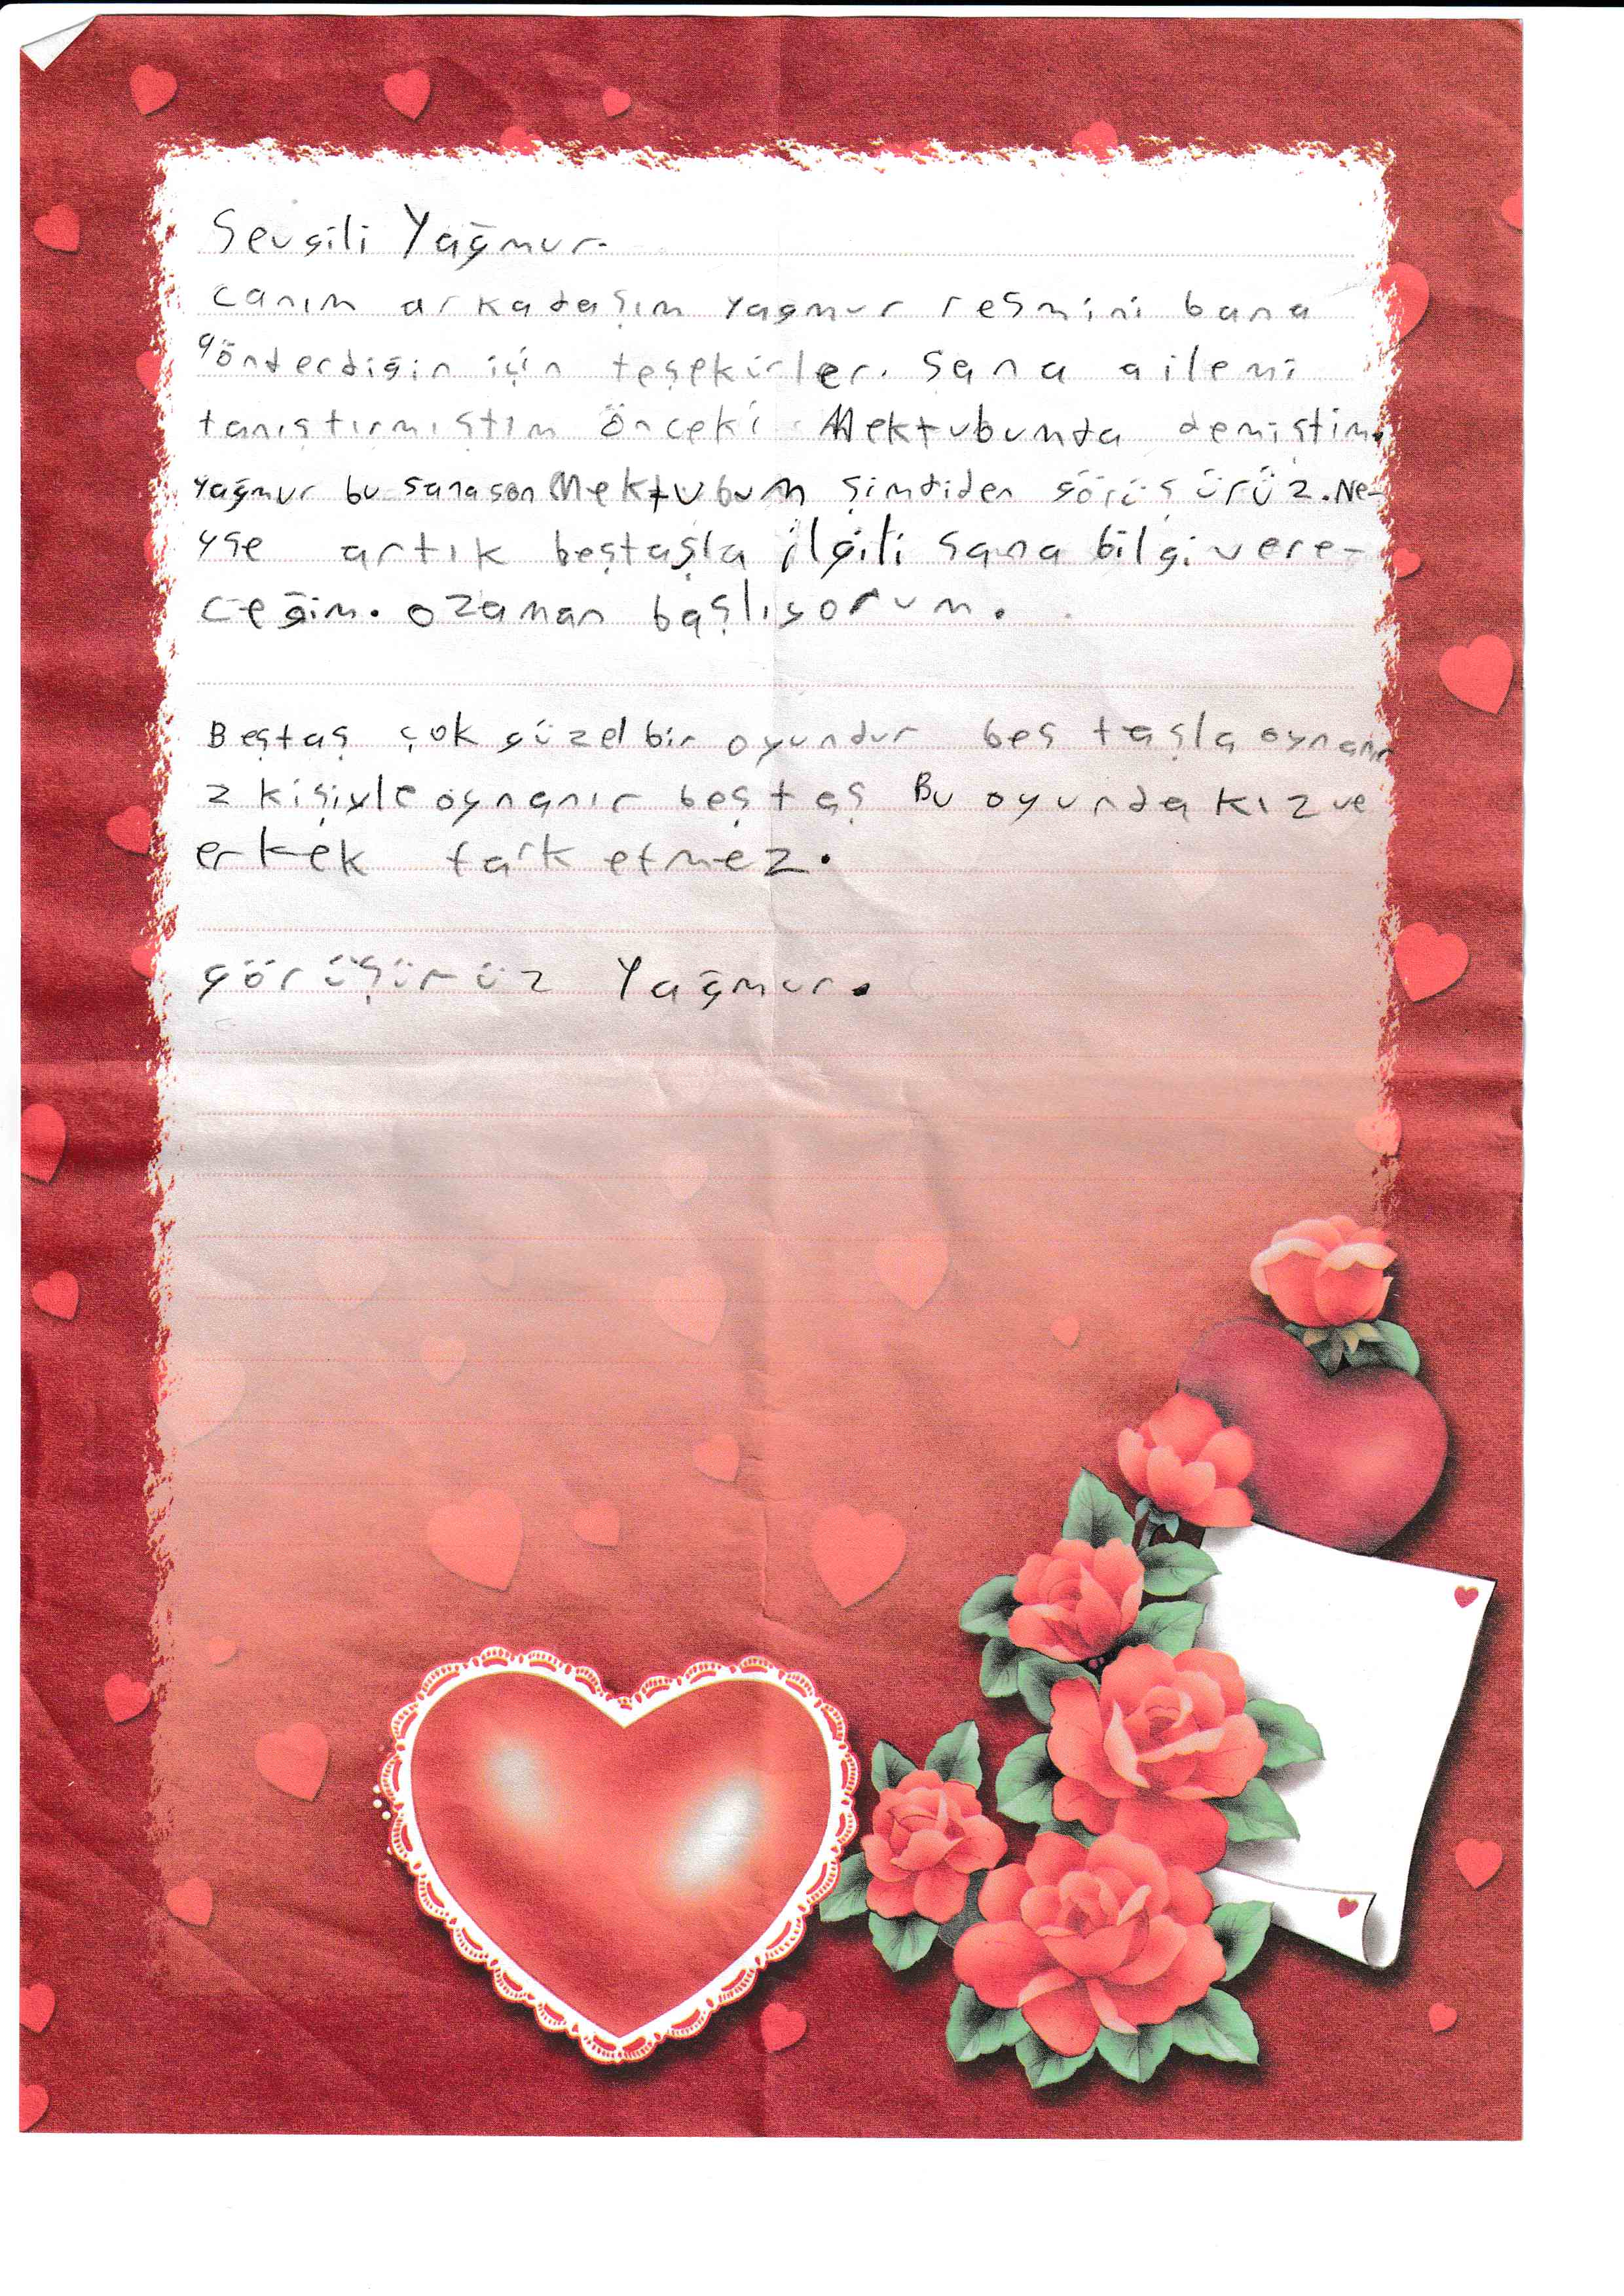 Sevgili Yağmur.
canım arkadaşım yagmur resmini bana
gönderdiğin için teşekürler. Sana ailemi
tanıştırmıştım önceki Mektubumda demiştim.
yağmur bu sana son Mektubum şimdiden görüşürüz. Ne-
yse artık beştaşla ilgili sana bilgi vere-
ceğim. o zaman başlıyorum.
Beştaş çok güzel bir oyundur beş taşla oynanır
2 kişiyle oynanır beştaş Bu oyunda kız ve
erkek fark etmez.
görüşürüz Yağmur.